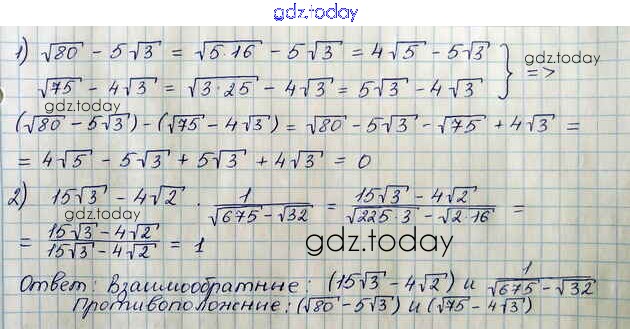 gdz.today
1) √80 - 5√3 = √5·16 - 5√3 = 4√5 - 5√3 } =>
gdz.today
√75 - 4√3 = √3·25 - 4√3 = 5√3 - 4√3
gdz.today
(√80 - 5√3) - (√75 - 4√3) = √80 - 5√3 - √75 + 4√3 =
= 4√5 - 5√3 + 5√3 + 4√3 = 0
2) 15√3 - 4√2 · 1/(√675 - √32) = (15√3 - 4√2)/(√225·3 - √2·16) =
gdz.today
= (15√3 - 4√2)/(15√3 - 4√2) = 1
gdz.today
Ответ: Взаимообратные: (15√3 - 4√2) и 1/(√675 - √32)
Противоположение: (√80 - 5√3) и (√75 - 4√3)